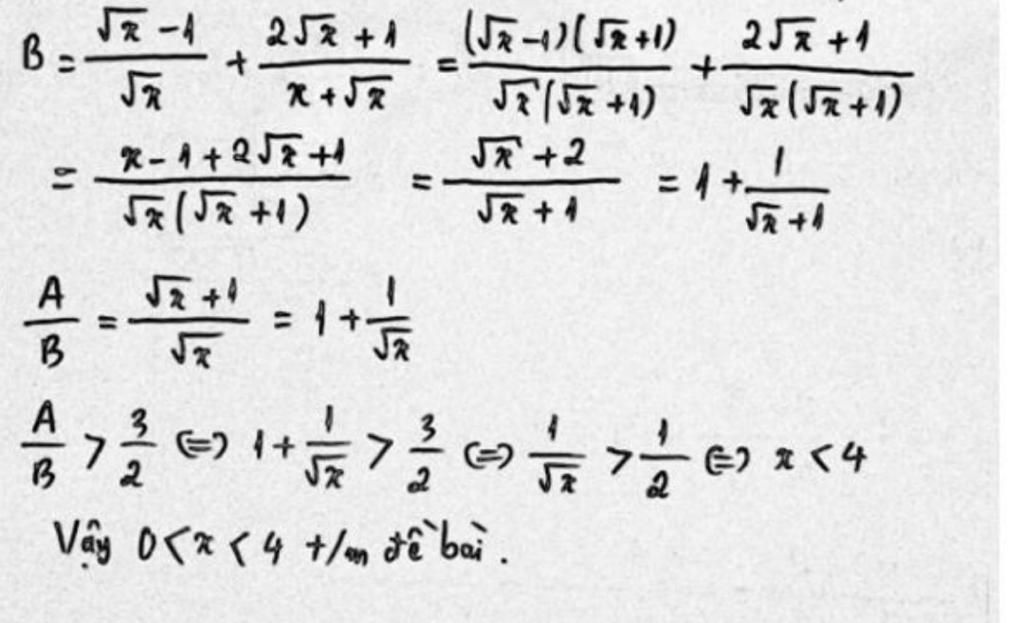 B = (√x - 1)/√x + (2√x + 1)/(x + √x) = ((√x - 1)(√x + 1))/(√x(√x + 1)) + (2√x + 1)/(√x(√x + 1))
= (x - 1 + 2√x + 1)/(√x(√x + 1)) = (√x + 2)/(√x + 1) = 1 + 1/(√x + 1)
A/B = (√x + 1)/√x = 1 + 1/√x
A/B > 3/2 (=) 1 + 1/√x > 3/2 (=) 1/√x > 1/2 (=) x < 4
Vậy 0 < x < 4 t/m đề bài.